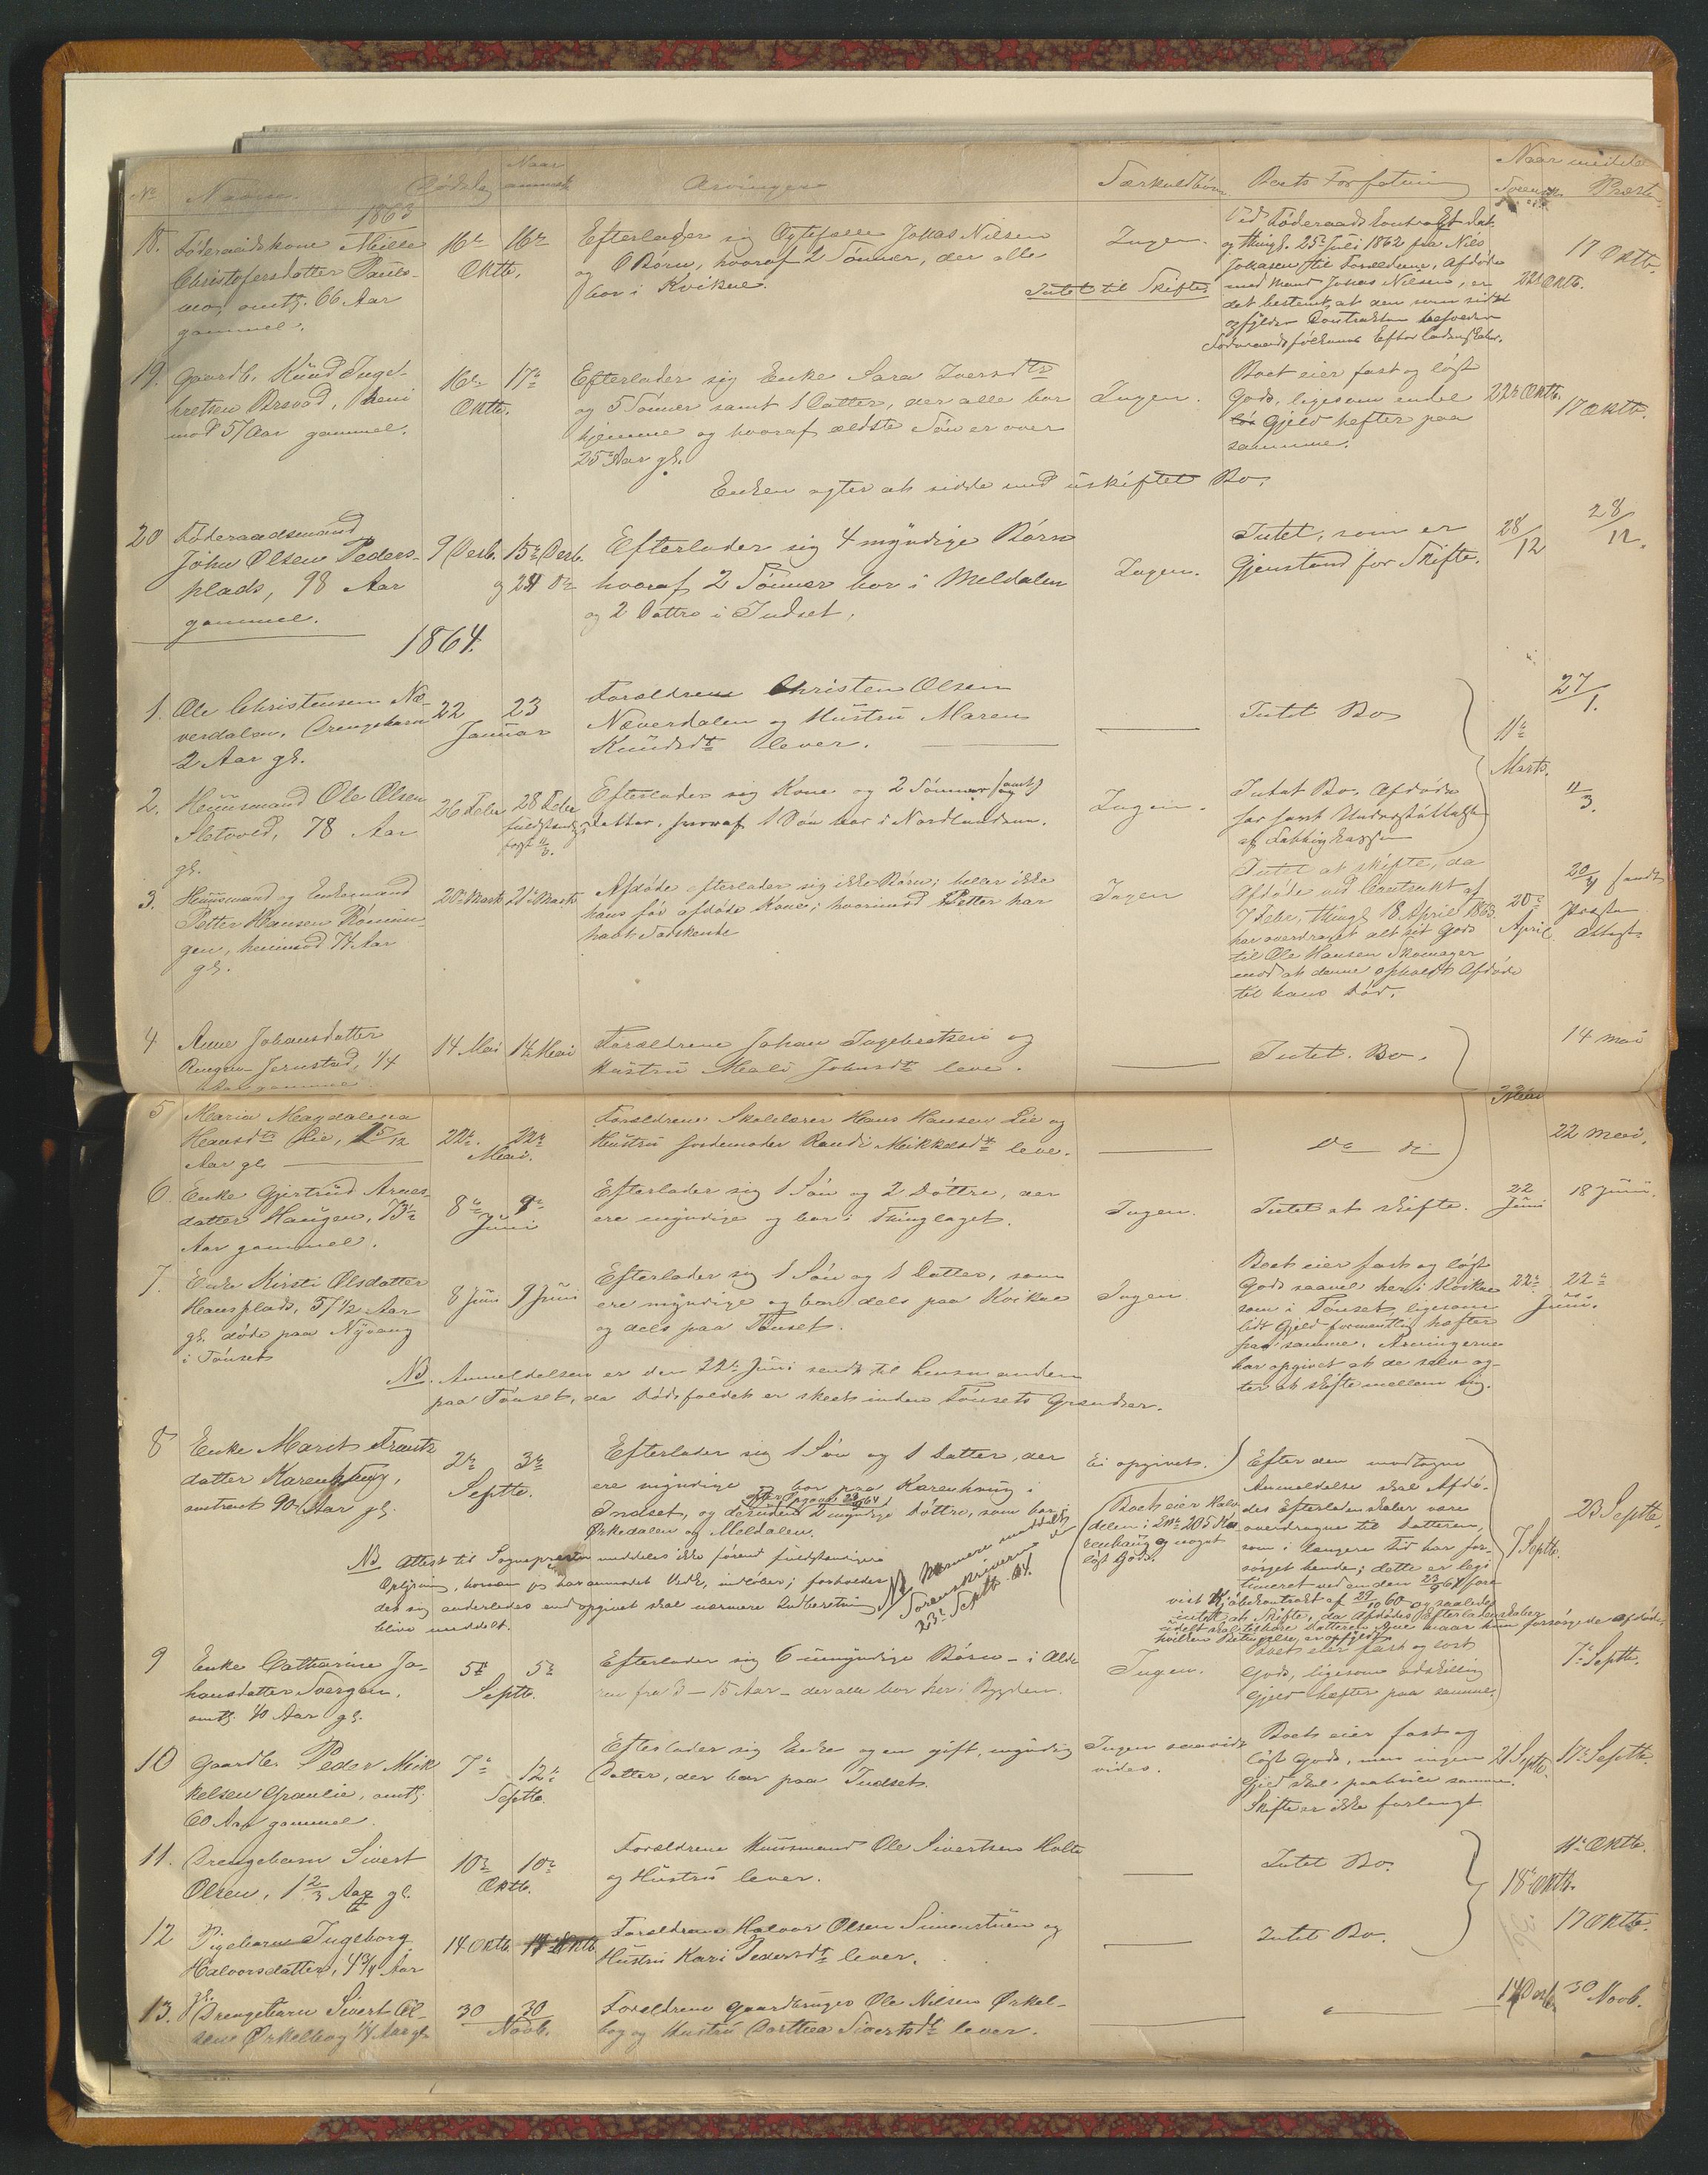 Naar Naar meddelt
No Navn. Dødsdag anmeldt Arvinger Særkuldbørn Boets Forfatning Sorensk. Præsten
1863
18. Føderaadskone Mille 16de 16de Efterlader sig Ægtefælle Johas Nilsen Ingen. Ved Føderaads Contract dat.
Christofersdatter og Børn, hvoraf 2 Sønner, der alle og thingl. 25de Juli 1862 fra Niels 17 Oktb.
Oktb. bor i Kvikne. Johasen til Forældrene, Afdøde
omtr. 66 Aar Intet til Skifte. med Mand Johas Nilsen, er 22de Oktb.
gammel. det bestemt, at den som sidst
opfylder Contrakten
Føderaadsfolkenes Efterladenskaber.
19. Gaardbr. Knud Inge- 16de 17de Efterlader sig Enke Sara Iversdtr Ingen. Boet eier fast og løst
bretsen Oktb. og 5 Sønner samt 1 Datter, der alle bor Gods, ligesom endel 22de Oktb. 17 Oktb.
mod 57 Aar gammel. hjemme og hvoraf ældste Søn er over Gjeld hefter paa
25 Aar gl. samme.
Enken agter at sidde med uskiftet Bo.
20 Føderaadsmand 9 Decb. 15de Decb. Efterlader sig 4 myndige Børn Ingen. Intet, som er 28/12 28/12.
John Olsen Peders- hvoraf 2 Sønner bor i Meldalen Gjenstand for Skifte.
plads, 98 Aar og 2 Døttre i Indset.
gammel.
1864.
1. Ole Christensen Næ- 22 23 Forældrene Christen Olsen Intet Bo 27/1.
verdalen. Drengebarn Januar Næverdalen og Hustru Maren 11te
2 Aar gl. Knudsdt lever. Marts.
2. Huusmand Ole Olsen 26 Febr 28 Febr Efterlader sig Kone og 2 Sønner samt Ingen. Intet Bo. Afdøde 11/3.
Flotvold, 78 Aar Datter, hvoraf 1 Søn bor i Nordlandene. har havt Understøttelse
gl. af Fattigkassen
3. Huusmand og Enkemand 20de Marts 21de Marts Afdøde efterlader sig ikke Børn; heller ikke Ingen Intet at skifte, da 20/4 sendt
Petter Hansen Rønnin- hans før afdøde Kone; hvorimod Petter har Afdøde ved Contrakt af 20de Præste
gen, henimod 74 Aar havt 7 Febr. thingl. 18 April 1863 April Attest
gl. har overdraget alt sit Gods
til Ole Hansen Skomager
mod at denne opholdt Afdøde
til hans Død.
4 Anne Johansdatter 14 Mai 14 Mai Forældrene Johan Ingebretsen og Intet Bo. 14 Mai
Jernstad, 1/4 Hustru Johnsdt leve.
Aar gammel
5 Maria Magdalena 22de 22de Forældrene Skolelærer Hans Hansen Lie og Do do Mai 22 Mai.
Hansdtr Lie, 5/12 Mai. Hustru Jordemoder Randi Mikkelsdtr leve.
Aar gl.
6. Enke Gjertrud Arnes- 8de 9de Efterlader sig 1 Søn og 2 Døttre, der Ingen. Intet at skifte. 22 Juni 18 Juni.
datter Haugen, 73 1/2 Juni ere myndige og bor i Thinglaget.
Aar gammel.
7. Enke Kirsti Olsdatter 8 Juni 9 Juni Efterlader sig 1 Søn og 1 Datter, som Ingen Boet eier fast og løst 22de 22de
Hansplads, 57 1/2 Aar ere myndige og bor dels paa Kvikne Gods saavel her i Kvikne Juni.
gl. døde paa Nyvang og dels paa Tønset. som i Tønset, ligesom
i Tønset lidt Gjeld formentlig hæfter
paa samme. Arvingerne
NB. Anmeldelsen er den 22de Juni sendt til Lensmanden har opgivet at de selv ag-
paa Tønset, da Dødsfaldet er skeet inden Tønsets Grændser. ter at skifte mellem sig.
8 Enke Marit Frants 2den 3de Efterlader sig 1 Søn og 1 Datter, der Ei opgivet. Efter den modtagne
datter Karenhaug, Septb. ere myndige og bor paa Karenhaug i Anmeldelse skal Afdø-
omtrent 90 Aar gl. Indset, og desuden 2 myndige Døttre, som bor i Boet eier Halv- des Efterladenskaber være 23 Septb.
Ørkedalen og Meldalen. delen i Lno 205 Ka- overdragne til Datteren,
renhaug og noget som i længere Tid har for- 7 Septb.
NB Attest til Sognepræsten meddeles ikke førend fuldstændige løst Gods. sørget hende; dette er legi-
Oplysning, hvorom jeg har anmodet indløber; forholder timeret ved en den 23/9 64 fore-
det sig anderledes end opgivet skal nærmere Indberetning vist Kjøbekontrakt af 60 og saaledes
blive meddelt. NB Nærmere meddelt Sorenskriveren 23de Septb. 64. intet at Skifte, da Afdødes Efterladenskaber
udelt skal tilhøre Datteren naar hun forsørgede afdøde,
hvilken Betingelse er opfyldt.
9 Enke Catharine Jo- 5te 5te Efterlader sig 6 umyndige Børn — i Alde Ingen. Boet eier fast og løst 7de Septb.
hansdatter Septb. ren fra 3 — 15 Aar — der alle bor her i Bygden. Gods, ligesom adskillig
omtr. 40 Aar gl. Gjeld hæfter paa samme.
10 Gaardbr. Peder Mik 7de 12te Efterlader sig Enke og en gift, myndig Ingen saavidt Boet eier fast og 21 Septb. 11te Septb.
kelsen Graulie, omtr. Septb. Datter, der bor paa Indset. vides. løst Gods, men ingen
60 Aar gammel. Gjeld skal paahvile samme.
Skifte er ikke forlangt.
11. Drengebarn Sivert 10de 10de Forældrene Huusmand Ole Sivertsen Holte Intet Bo. 11te Oktb.
Olsen, 1 2/3 Aar gl. Oktb. og Hustru lever. 18de Oktb.
12 Pigebarn Ingeborg 14 Oktb. Forældrene Halvor Olsen Simenstuen og Intet Bo. 17 Oktb.
Halvorsdatter, 4 3/4 Aar Hustru Kari Pedersdt lever.
gl.
13. Drengebarn Sivert Ol- 30 30 Forældrene Gaardbruger Ole Nilsen Ørkel- 14 Decb. 30 Novb.
sen Ørkelbog 1/4 Aar gl. Novb. bog og Hustru Dorthea Sivertsdt lever.